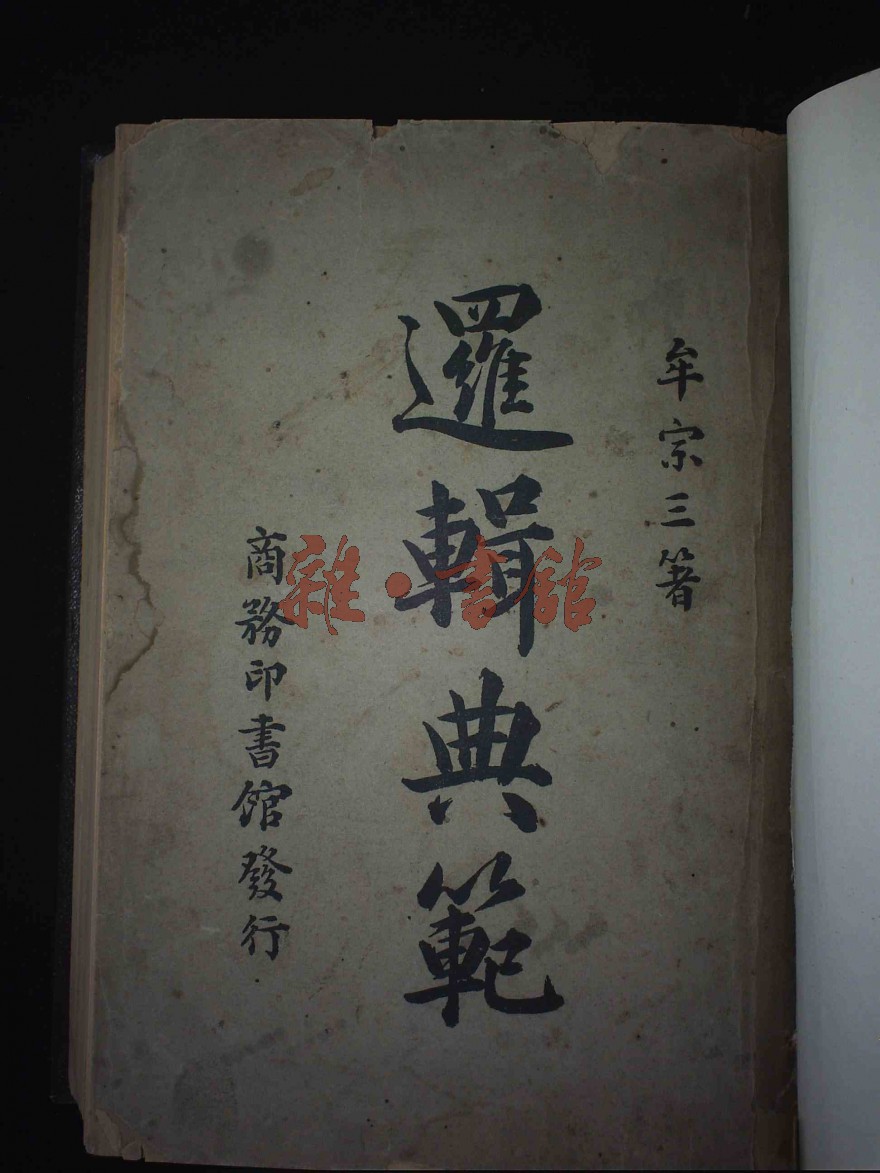 牟宗三箸
邏輯典範
商務印書館發行
雜·書館